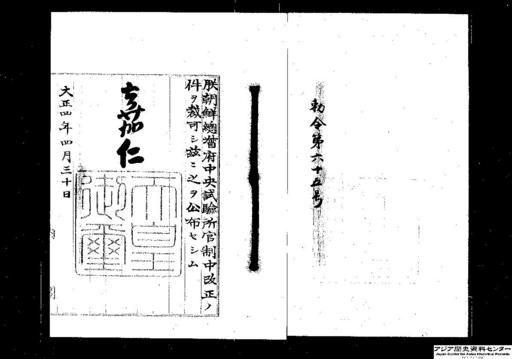 勅令第六十五号
朕朝鮮總督府中央試驗所官制中改正ノ
件ヲ裁可シ茲ニ之ヲ公布セシム
嘉仁
天皇
御璽
大正四年四月三十日
内閣
アジア歴史資料センター
Japan Center for Asian Historical Records